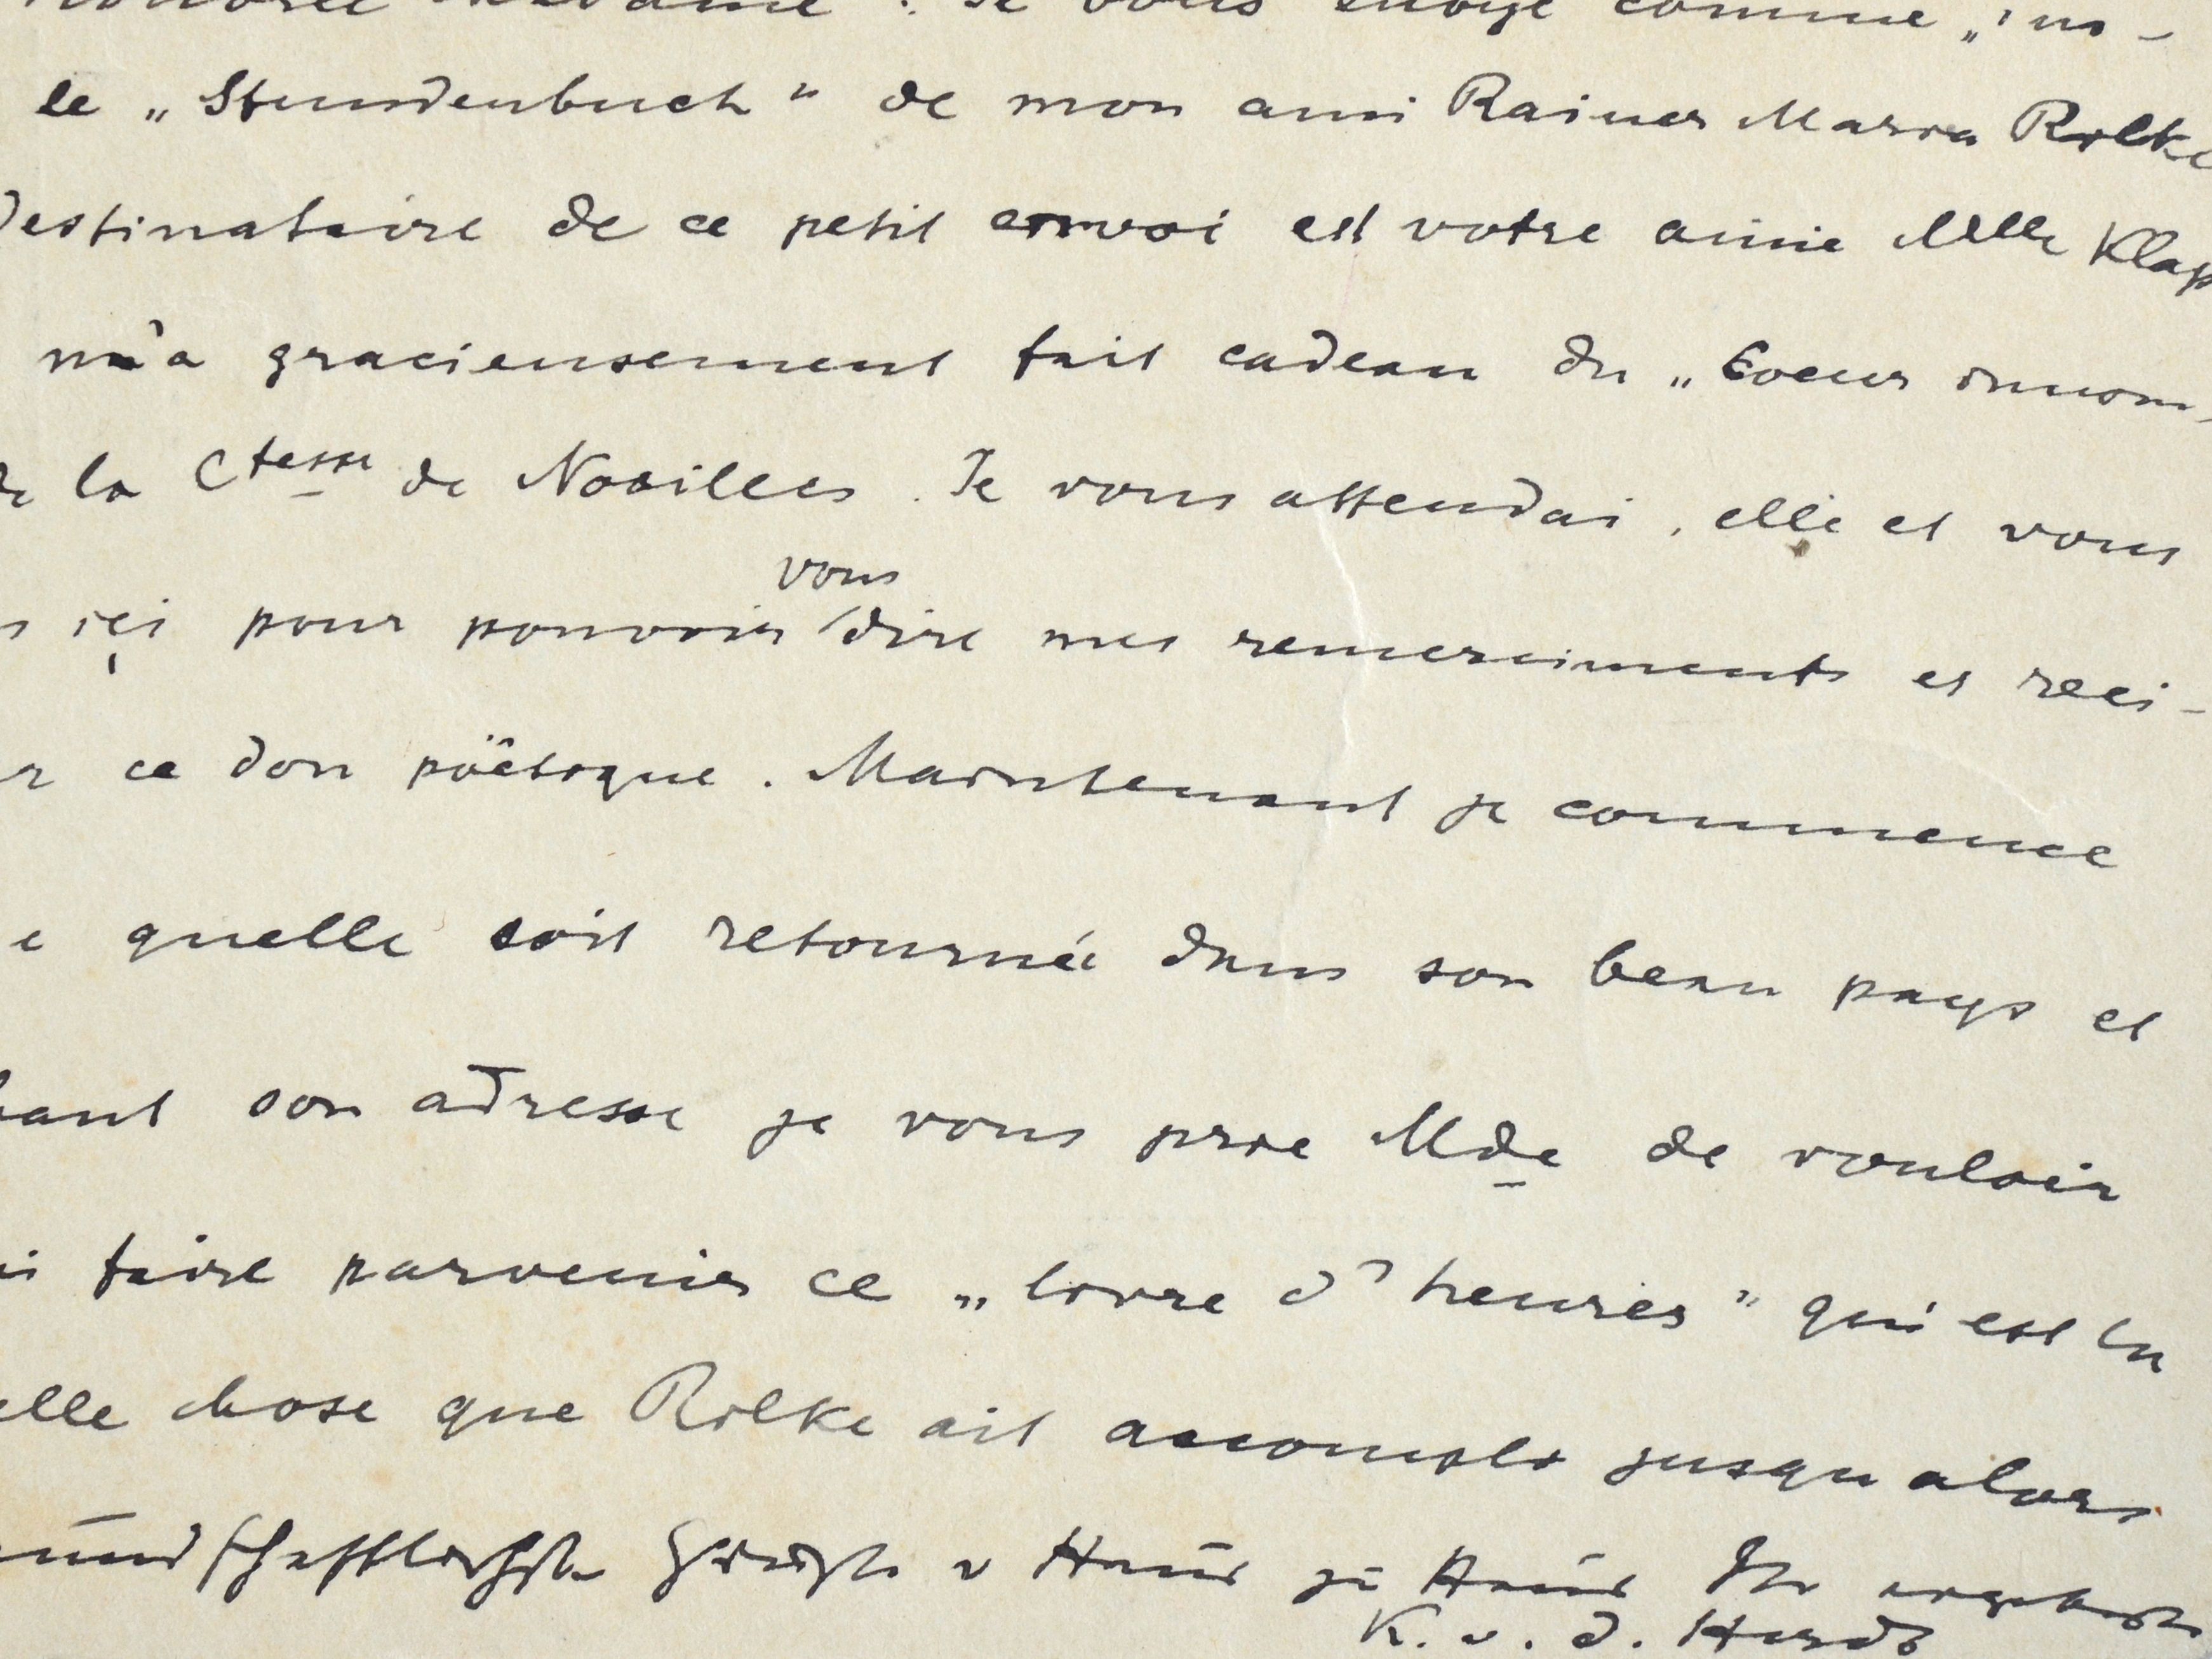 honorée Madame : Je vous envoye comme „ im-
le „Stundenbuch" de mon ami Rainer Maria Rilke
Destinataire de ce petit envoi est votre amie Melle Klap
m'a graciensement fait cadeau du „Coeur innom
de la Ctesse de Noailles. Je vous attendai, elle et vous
içi pour pouvoir vous dire mes remerciments et reci-
ce don poëtique. Maintenant je commence
quelle soit retournée dans son beau pays et
hant son adresse je vous prie Mde de vouloir
faire parvenir ce „livre d'heures" qui est la
elle chose que Rilke ait accompli jusqu alors
undschaftlichste Grüße v Haus zu Haus Ihr ergebenster
K. v. d. Hardt